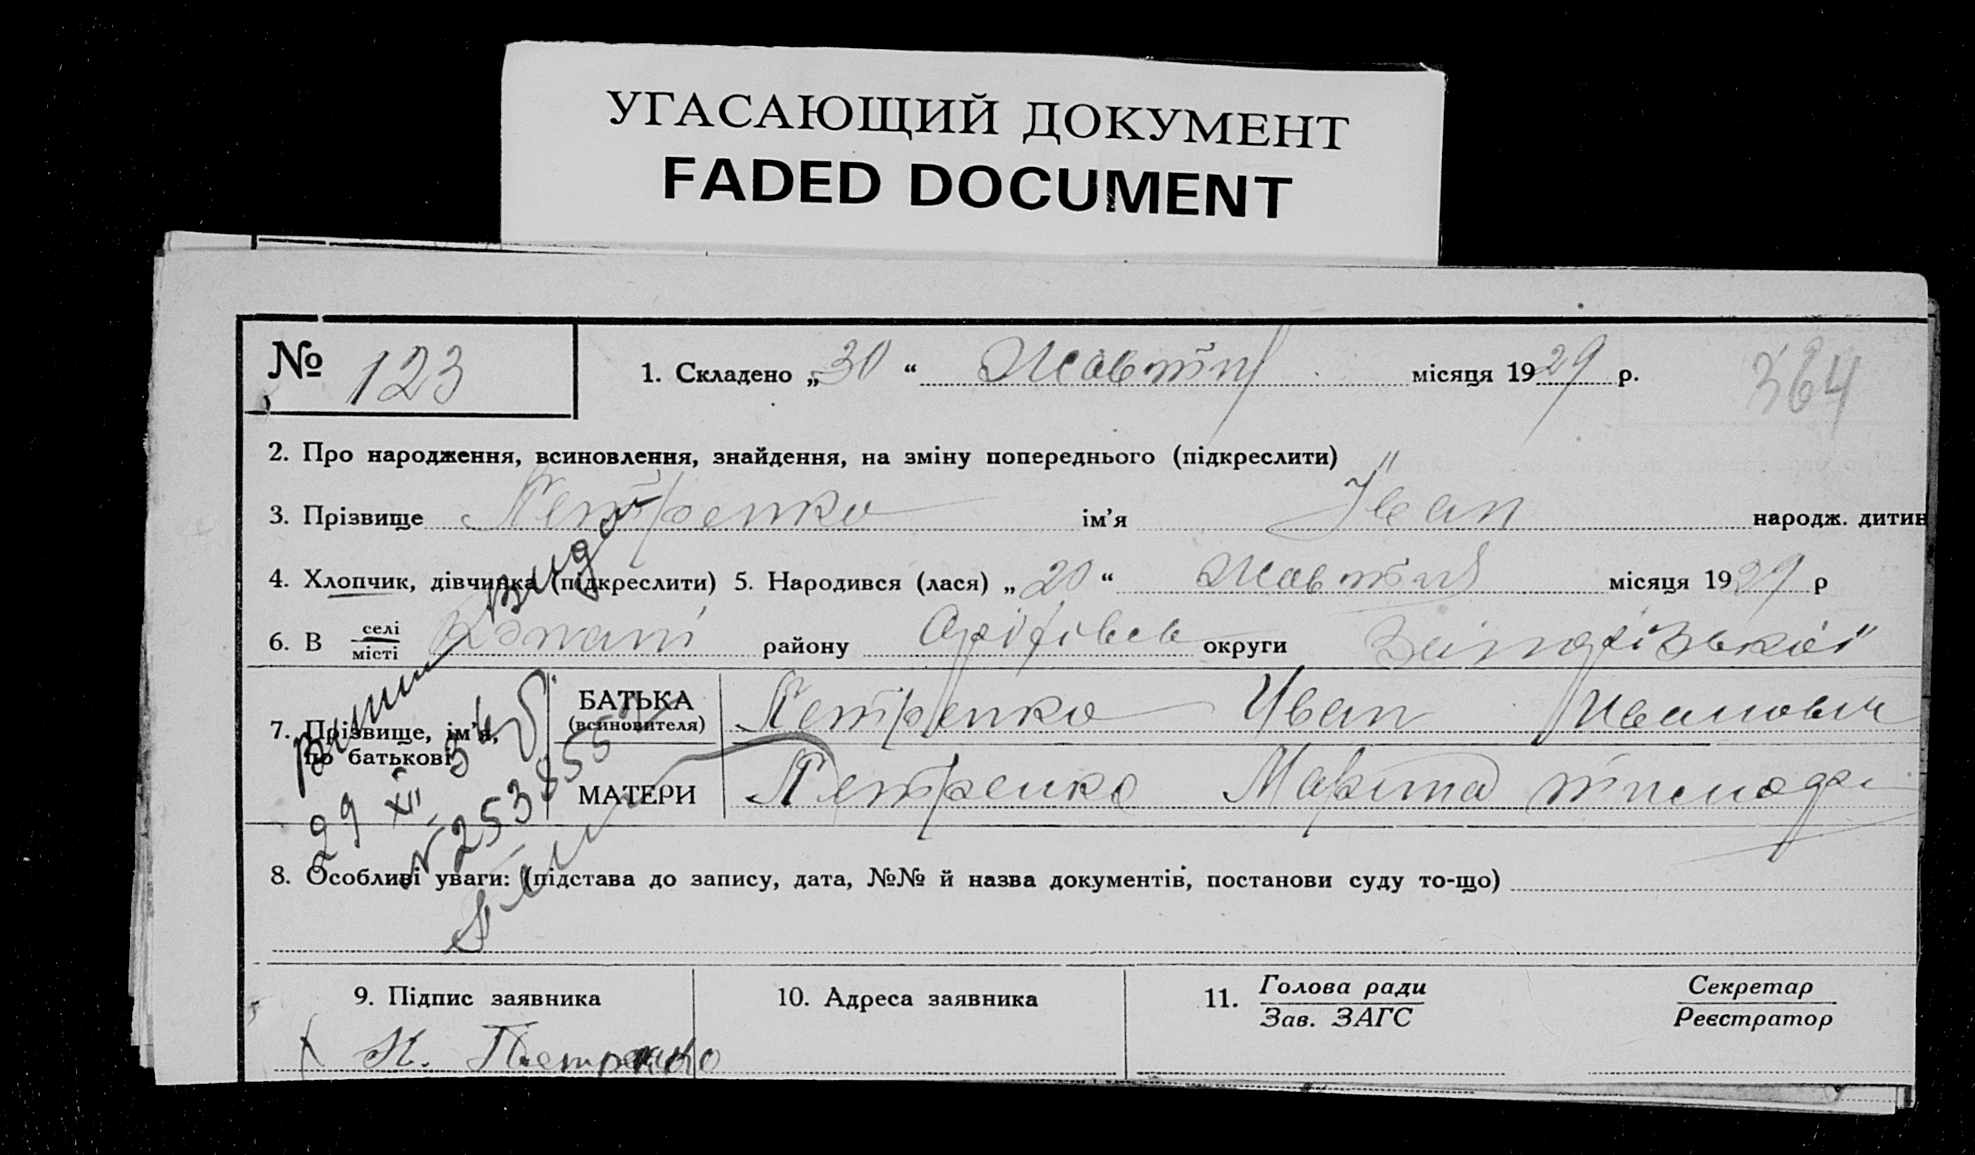 УГАСАЮЩИЙ ДОКУМЕНТ
FADED DOCUMENT
№ 123
1. Складено „30“ Жовтня місяця 1929 р.
364
2. Про народження, всиновлення, знайдення, на зміну попереднього (підкреслити)
3. Прізвище Петренко ім’я Іван народж. дитин
4. Хлопчик, дівчинка (підкреслити) 5. Народився (лася) „20“ Жовтня місяця 1929 р
6. В селі місті району округи
7. Прізвище, ім’я, по батькові
БАТЬКА (всиновителя) Петренко Иван Иванович
МАТЕРИ Петренко
29 XII
№ 253855
8. Особливі уваги: (підстава до запису, дата, №№ й назва документів, постанови суду то-що)
9. Підпис заявника
10. Адреса заявника
11. Голова ради Зав. ЗАГС
Секретар Реєстратор
Петренко